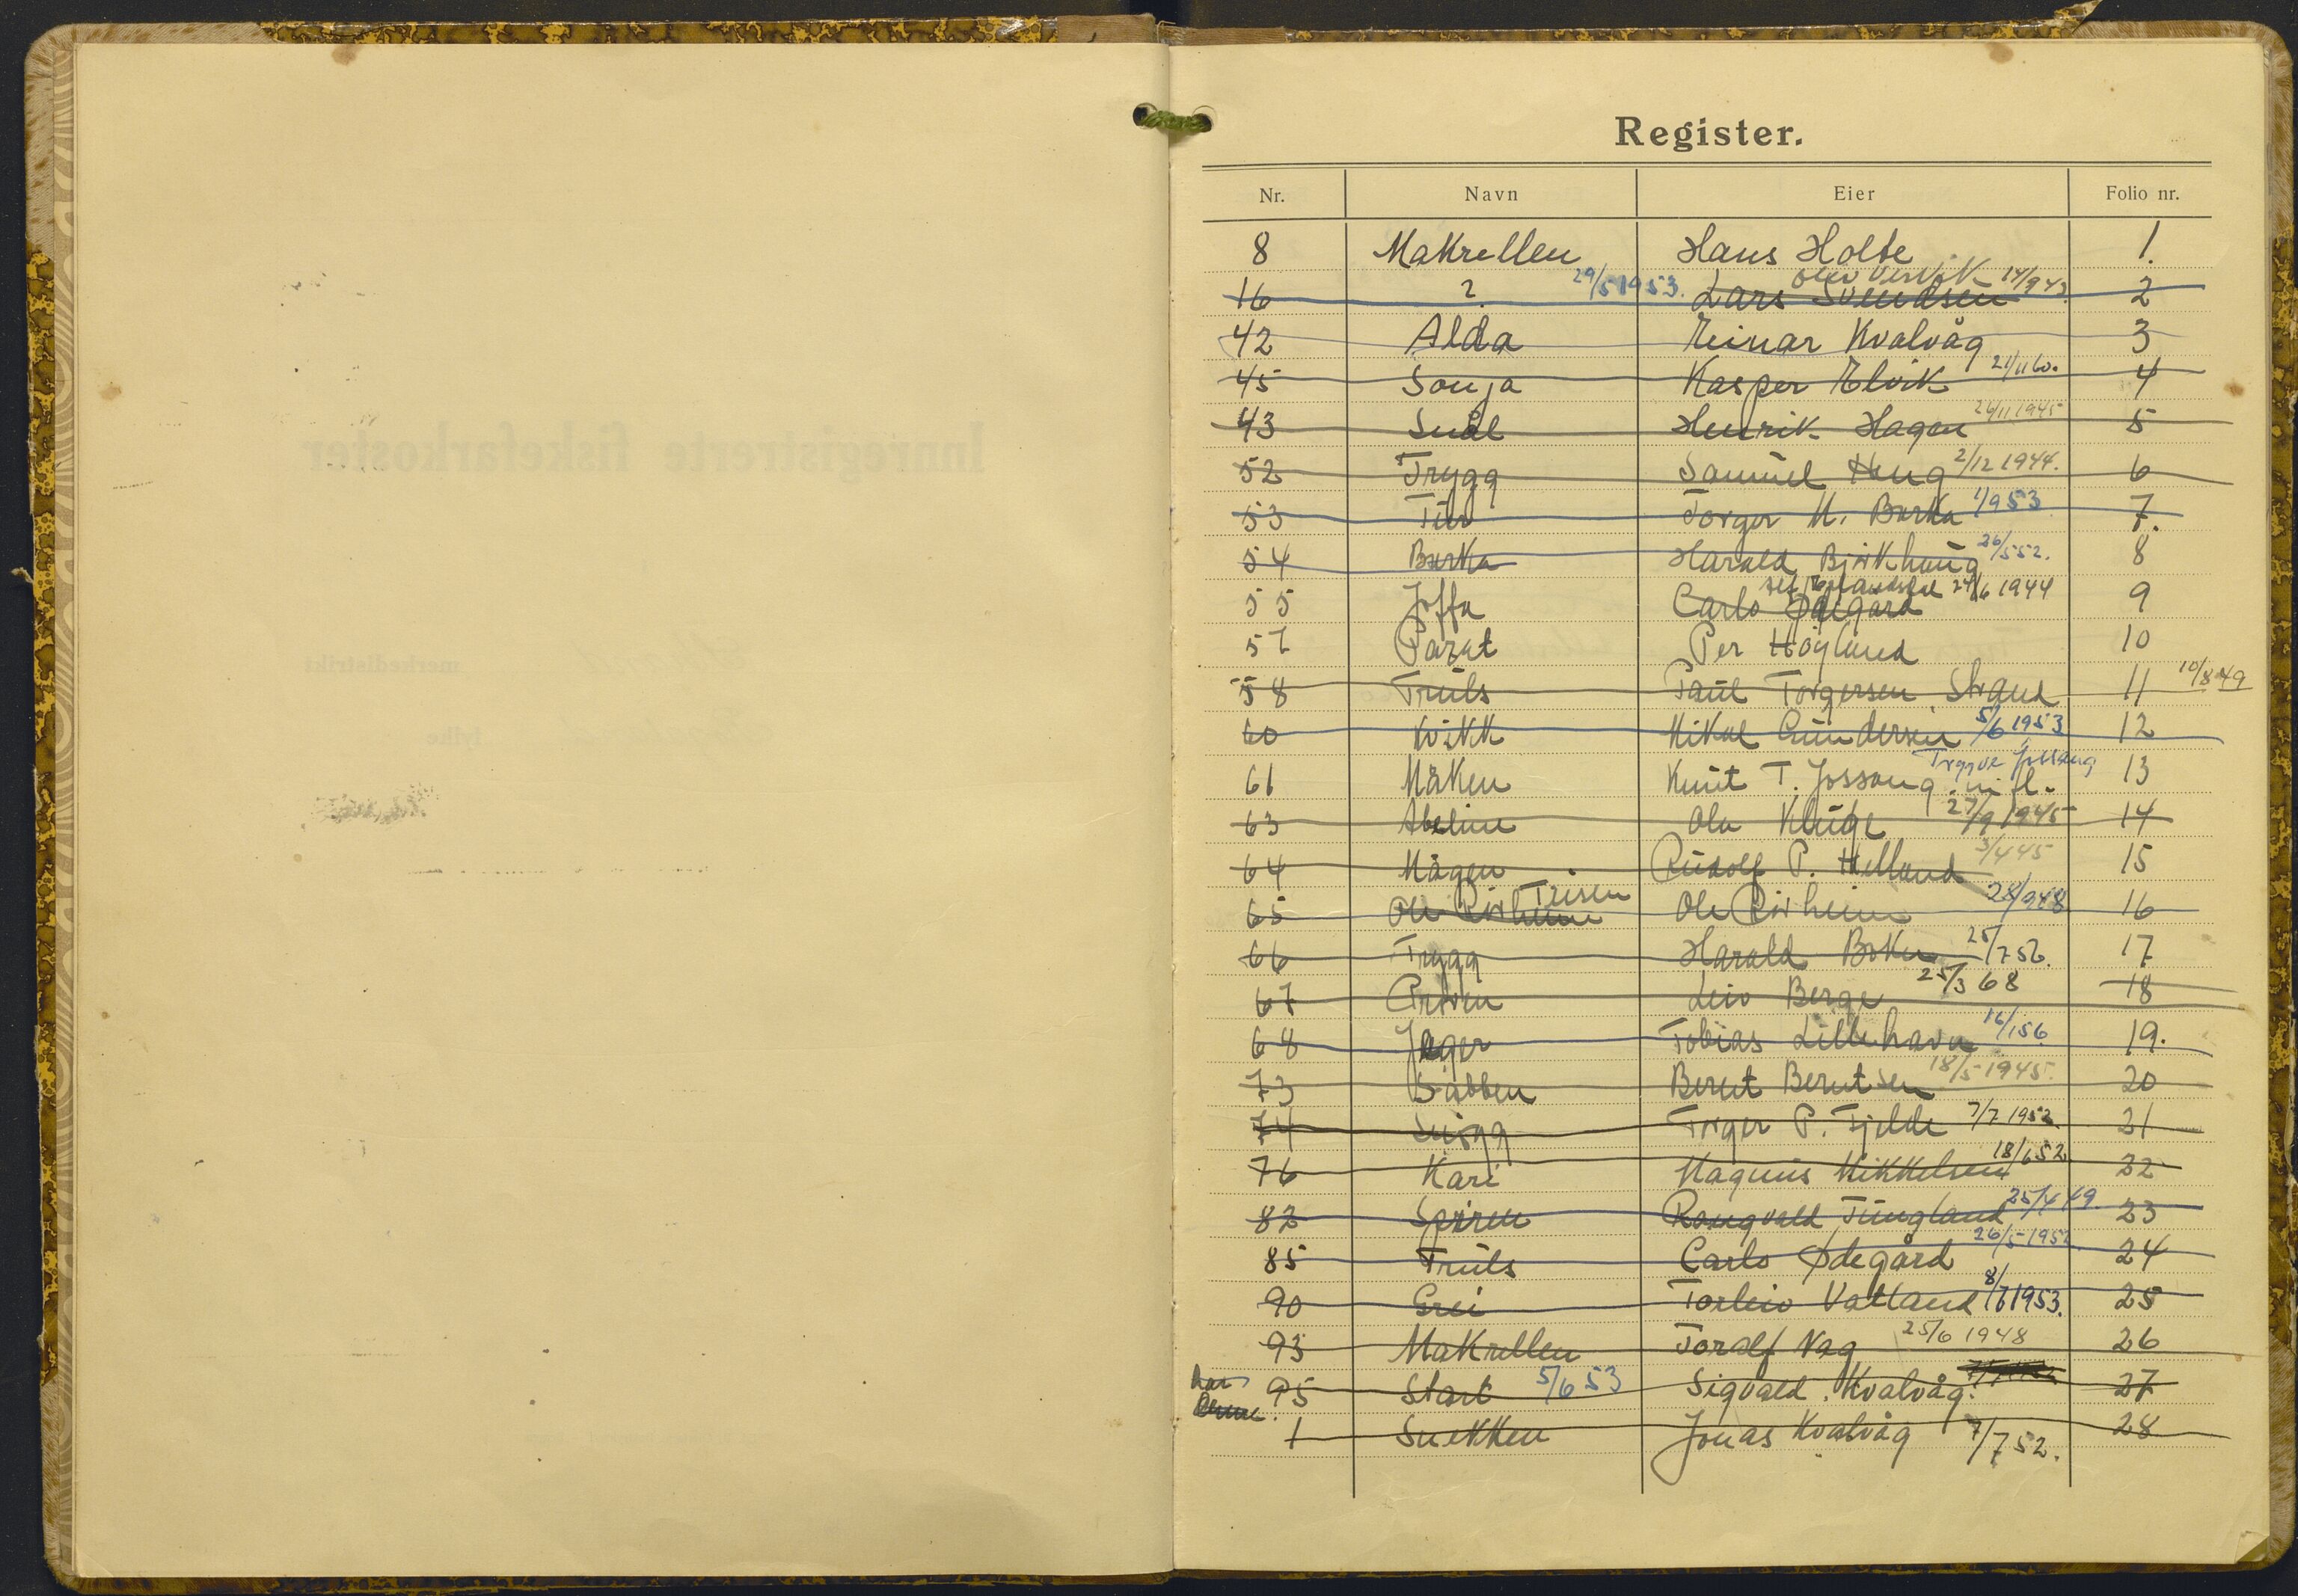 Register.
Nr. Navn Eier Folio nr.
8 Makrellen Hans Holte 1.
16 ? 29/5 1953. Lars Svendsen 14/9 43 2
42 Alda Einar Kvalvåg 3
45 Sonja Kasper Elvik 21/11 60. 4
43 Snål Henrik Hagen 26/11 1945 5
52 Trygg Samuel Haug 2/12 1944. 6
53 Tur Torger M. Barka 1/9 53 7.
54 Barka Harald Bjørkhaug 26/5 52. 8
24/6 1944
55 Joffa Carlo Ødegård 9
57 Parat Per Høyland 10
58 Truls Paul Torgersen Strand 11 10/8 49
60 Kvikk Mikal Gundersen 5/6 1953 12
Trygve Jøssang
61 Måken Knut T. Jøssang m fl. 13
63 Abeline Ola Kluge 27/9 1945 14
64 Mågen Rudolf P. Helland 3/4 45 15
Teisen
65 Ole Rørheim Ole Rørheim 28/9 48 16
66 Trygg Harald Boken 25/7 56. 17
67 Prøven Leiv Berge 25/3 68 18
68 Jeger Tobias Lillehavn 16/1 56 19.
73 Sabben Bernt Berntsen 18/5 1945. 20
74 Snøgg Torger P. Fjelde 7/7 1952. 21
76 Kari Magnus Mikkelsen 18/6 52 22
82 Spiren Rangvald Tungland 25/4 49. 23
85 Truls Carlo Ødegård 26/5 1952. 24
90 Grei Torleiv Vatland 8/6 1953. 25
93 Makrellen Toralf Vag 25/6 1948 26
95 Start 5/6 53 Sigvald Kvalvåg. 27
1 Snekken Jonas Kvalvåg 7/7 52. 28
Innregistrerte fiskefarkoster
merkedistrikt
fylke